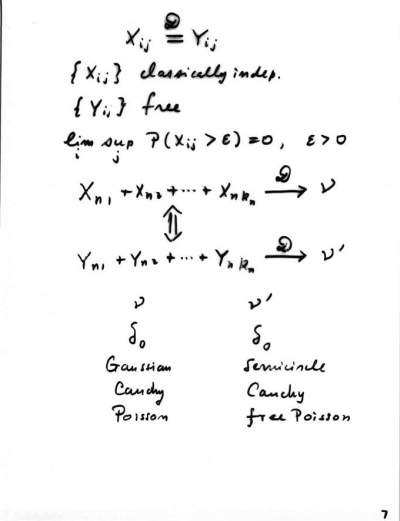 X_{ij} \stackrel{𝒟}{=} Y_{ij}
{X_{ij}} classically indep.
{Y_{ij}} free
lim_i sup_j P(X_{ij} > ε) = 0, ε > 0
X_{n1} + X_{n2} + ⋯ + X_{nk_n} \xrightarrow{𝒟} ν
⇕
Y_{n1} + Y_{n2} + ⋯ + Y_{nk_n} \xrightarrow{𝒟} ν'
ν ν'
δ_0 δ_0
Gaussian Semicircle
Cauchy Cauchy
Poisson free Poisson
7